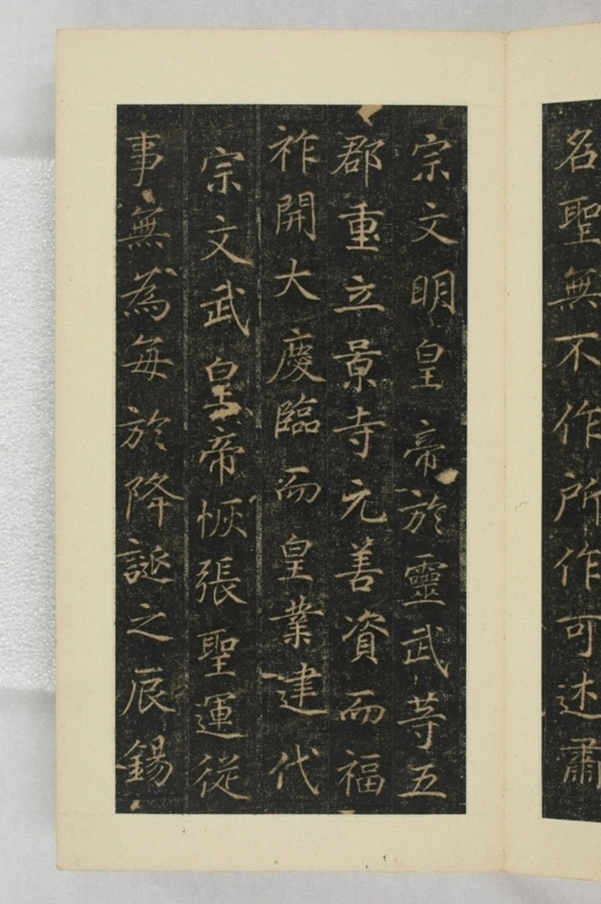 名聖無不作所作可述肅
宗文明皇帝於靈武等五
郡重立景寺元善資而福
祚開大慶臨而皇業建代
宗文武皇帝恢張聖運從
事無為每於降誕之辰錫